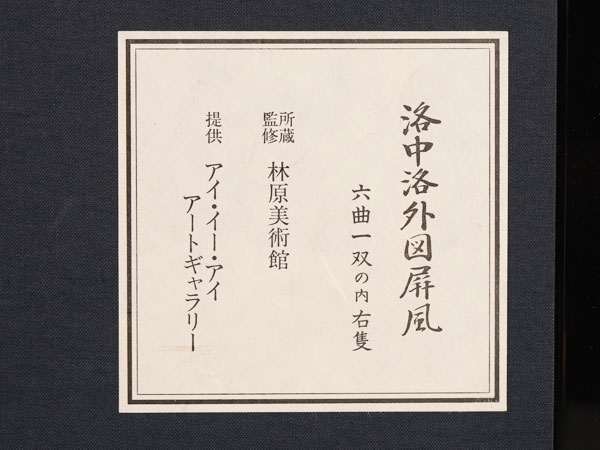 洛中洛外図屏風
六曲一双の内 右隻
所蔵
監修
林原美術館
提供
アイ・イー・アイ
アートギャラリー